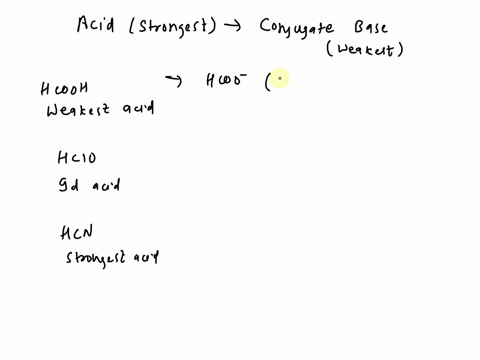 Acid (Strongest) → Conjugate Base
(Weakest)
HCOOH → HCOO⁻ (
Weakest acid
HClO
gd acid
HCN
Strongest acid